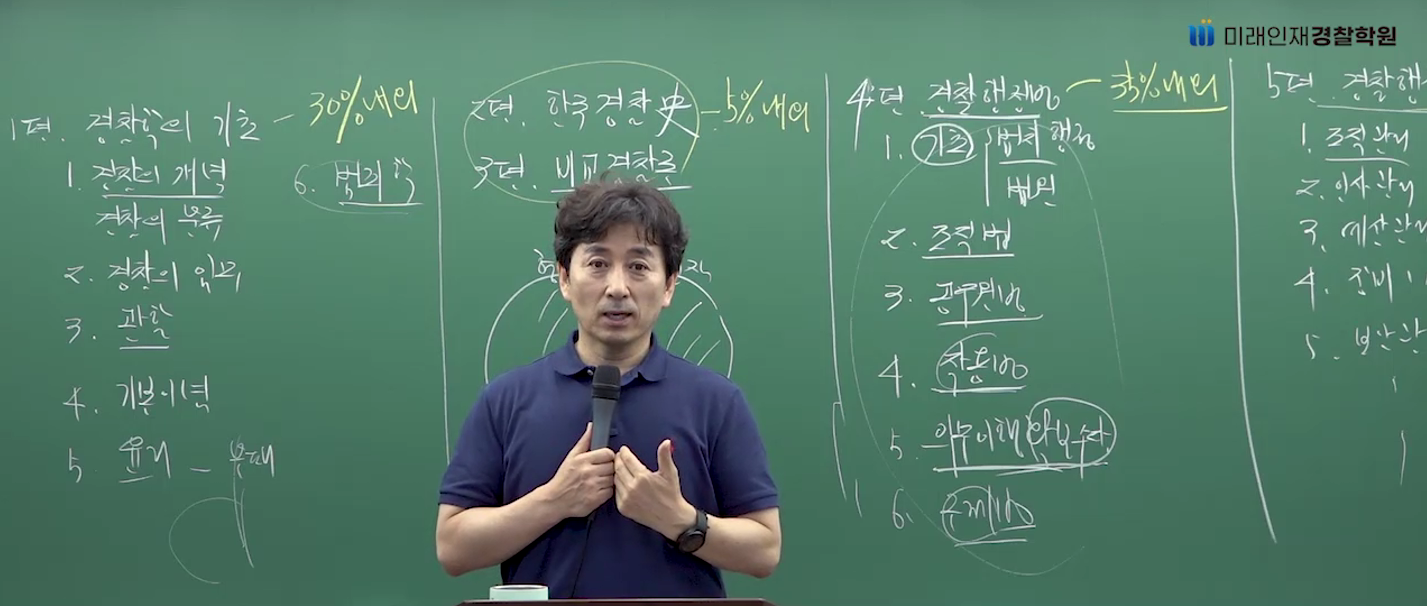 미래인재경찰학원
1편. 경찰학의 기초 - 30%내외
1. 경찰의 개념
경찰의 분류
2. 경찰의 임무
3. 관할
4. 기본이념
5. 윤리 - 부패
6. 범죄학
2편. 한국경찰史 - 5%내외
3편. 비교경찰론
4편. 경찰행정법 - 35%내외
1. 기초 법치행정
법원
2. 조직법
3. 공무원법
4. 작용법
5. 의무이행확보수단
6. 구제법
5편. 경찰행
1. 조직관리
2. 인사관리
3. 예산관리
4. 장비
5. 보안관